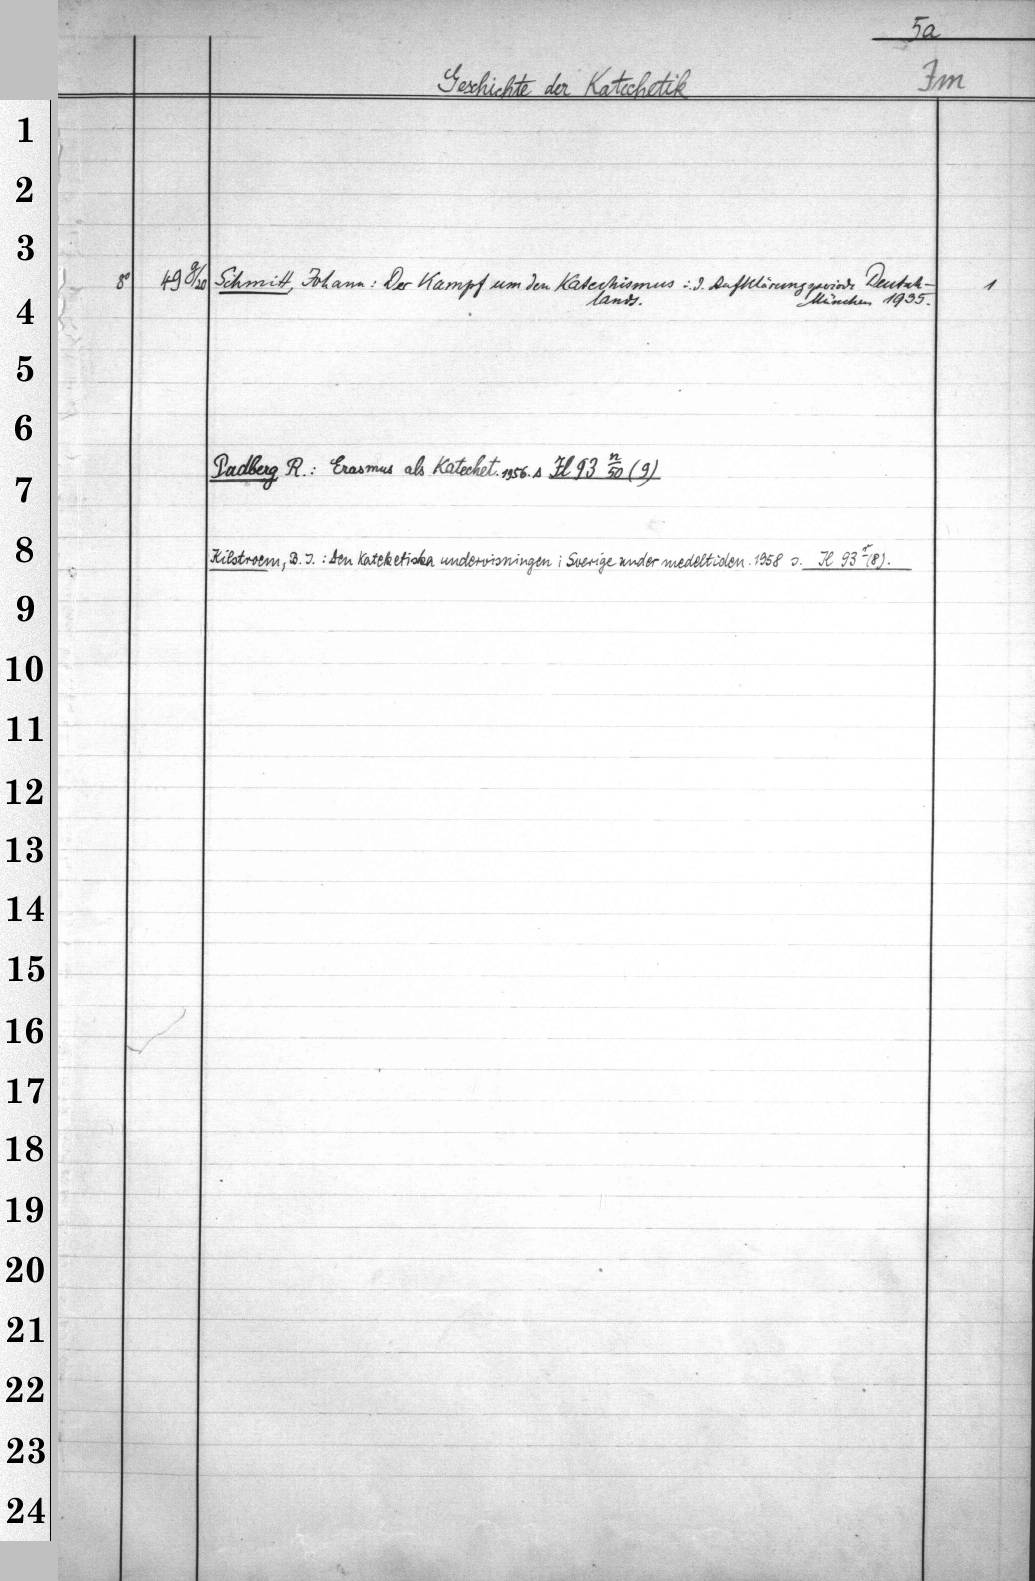 5a
Geschichte der Katechetik
Im
1
2
3
8° 49 g/20 Schmitt, Johann: Der Kampf um den Katechismus i. d. Aufklärungsperiode Deutsch- 1
lands. München 1935.
4
5
6
Padberg R.: Erasmus als Katechet. 1956. s Il 93 n/50 (9)
7
8
Kilstroem, B. I.: Den kateketiska undervisningen i Sverige under medeltiden. 1958 s. Il 93 (8).
9
10
11
12
13
14
15
16
17
18
19
20
21
22
23
24